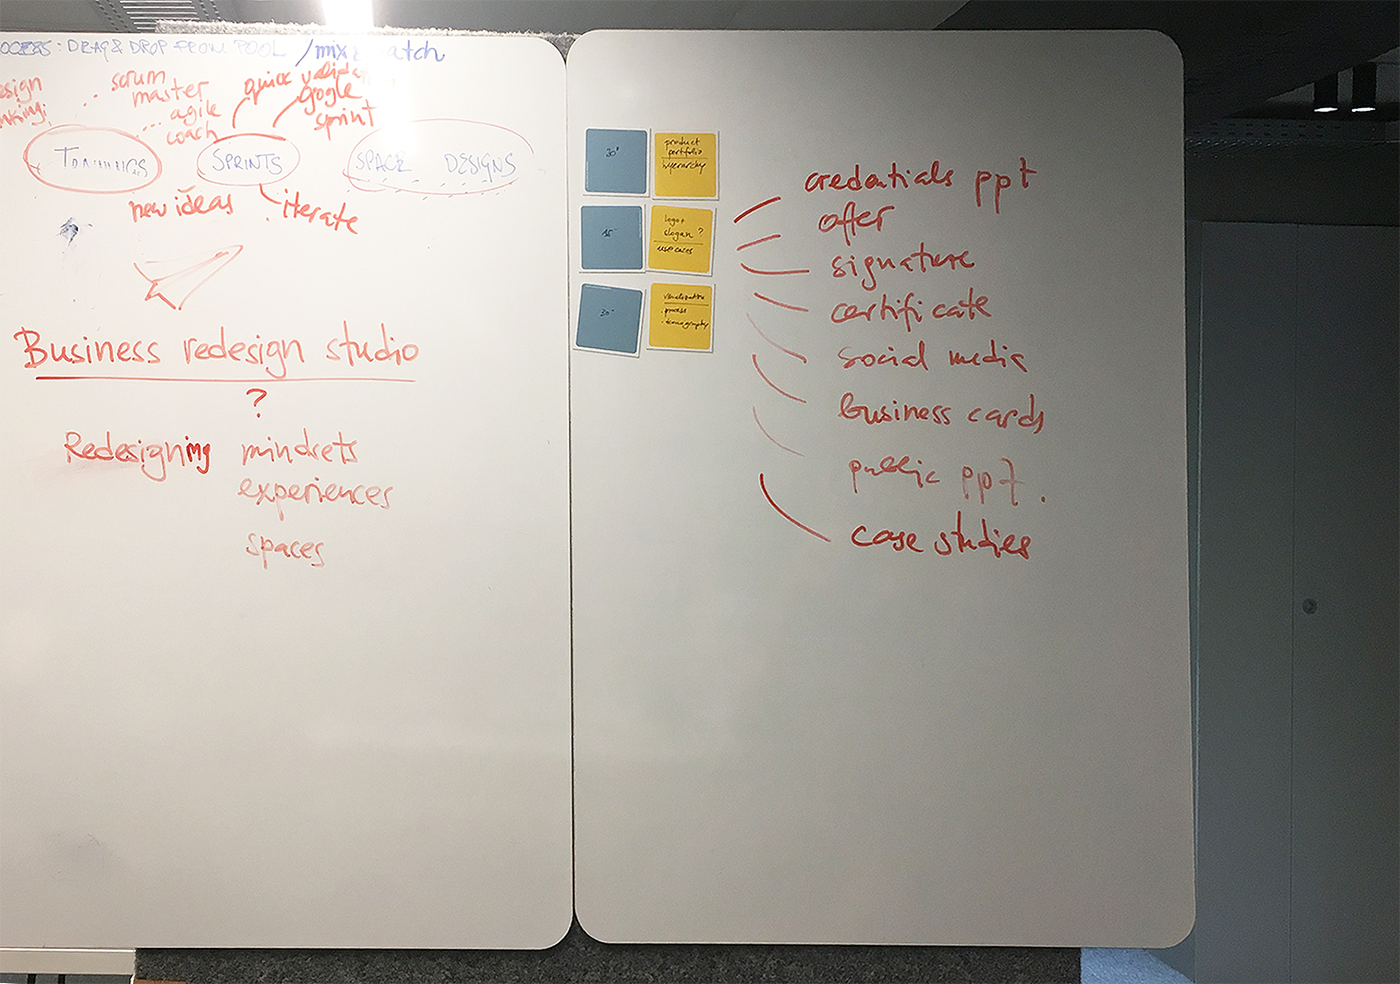 OCESS: DRAG & DROP FROM POOL / mix & atch
esign
nking:
scrum
master
agile
coach
quick valida
google
sprint
TRAININGS
SPRINTS
SPACE DESIGNS
new ideas
iterate
Business redesign studio
?
Redesigning mindsets
experiences
spaces
30"
product
portfolio
hyerarchy
15"
logo+
slogan ?
use cases
30"
visualisation
process
credentials ppt
offer
signature
certificate
social media
business cards
public ppt.
case studies